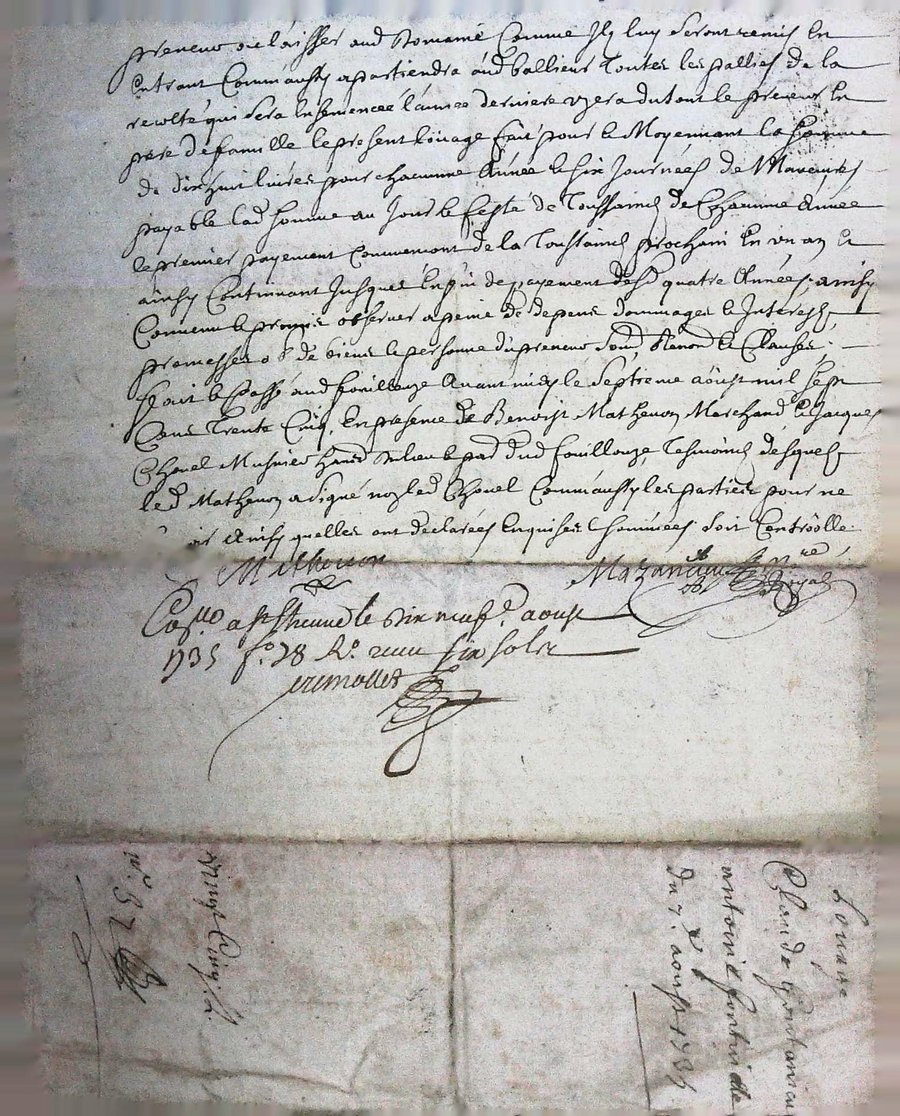 preneur de laisser aud domaine Comme Ily luy seront remis En
Entrant Comm'aussy apartiendra aud ballieur Toutes les pallies de la
recolté qui sera Ensemencée l'année derniere uzera dutout le preneur En
pere de famille le present louage fait pour & Moyennant la somme
de dix huit livres pour chacunne Année & six Journées de Maneuvres
payable lad somme au Jour & feste de Toussaincts de Chacunne Année
le premier payement Commencant de la Toussaincts prochain En un an &
ainsy Continuant Jusques En fin de payement desd quatre Années. ainsy
Convenu & promis observer a peine de depens dommages & Interests
promesses ob de biens & personne du preneur soum Renon & Clauses
fait & passé aud fouillouze Avant midy le septieme aoust mil sept
Cens Trente Cinq, En presence de Benoist Mathevon Marchand & Jacques
Chovel Musnier du lieu & par dud fouillouze Tesmoins desquels
led Mathevon a signé non led Chovel Comm'aussy les parties pour ne
Ainsy quelles ont declarées Enquises & sommées soit Contrôllé
Mathevon
Mazandieu Nre Royal
Collo a St Etienne le dix neuf aoust
1735 fo 78 Ro receu six sols
Louage
Claude
antoine
du 7e aoust 1735
vingt Cinq s.
no. 32